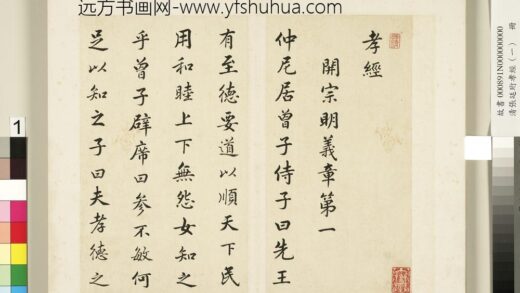 远方书画网-www.yfshuhua.com
孝經
開宗明義章第一
仲尼居曾子侍子曰先王
有至德要道以順天下民
用和睦上下無怨女知之
乎曾子辟席曰參不敏何
足以知之子曰夫孝德之
故書000891N000000000
清張廷玽孝經(一) 冊
1